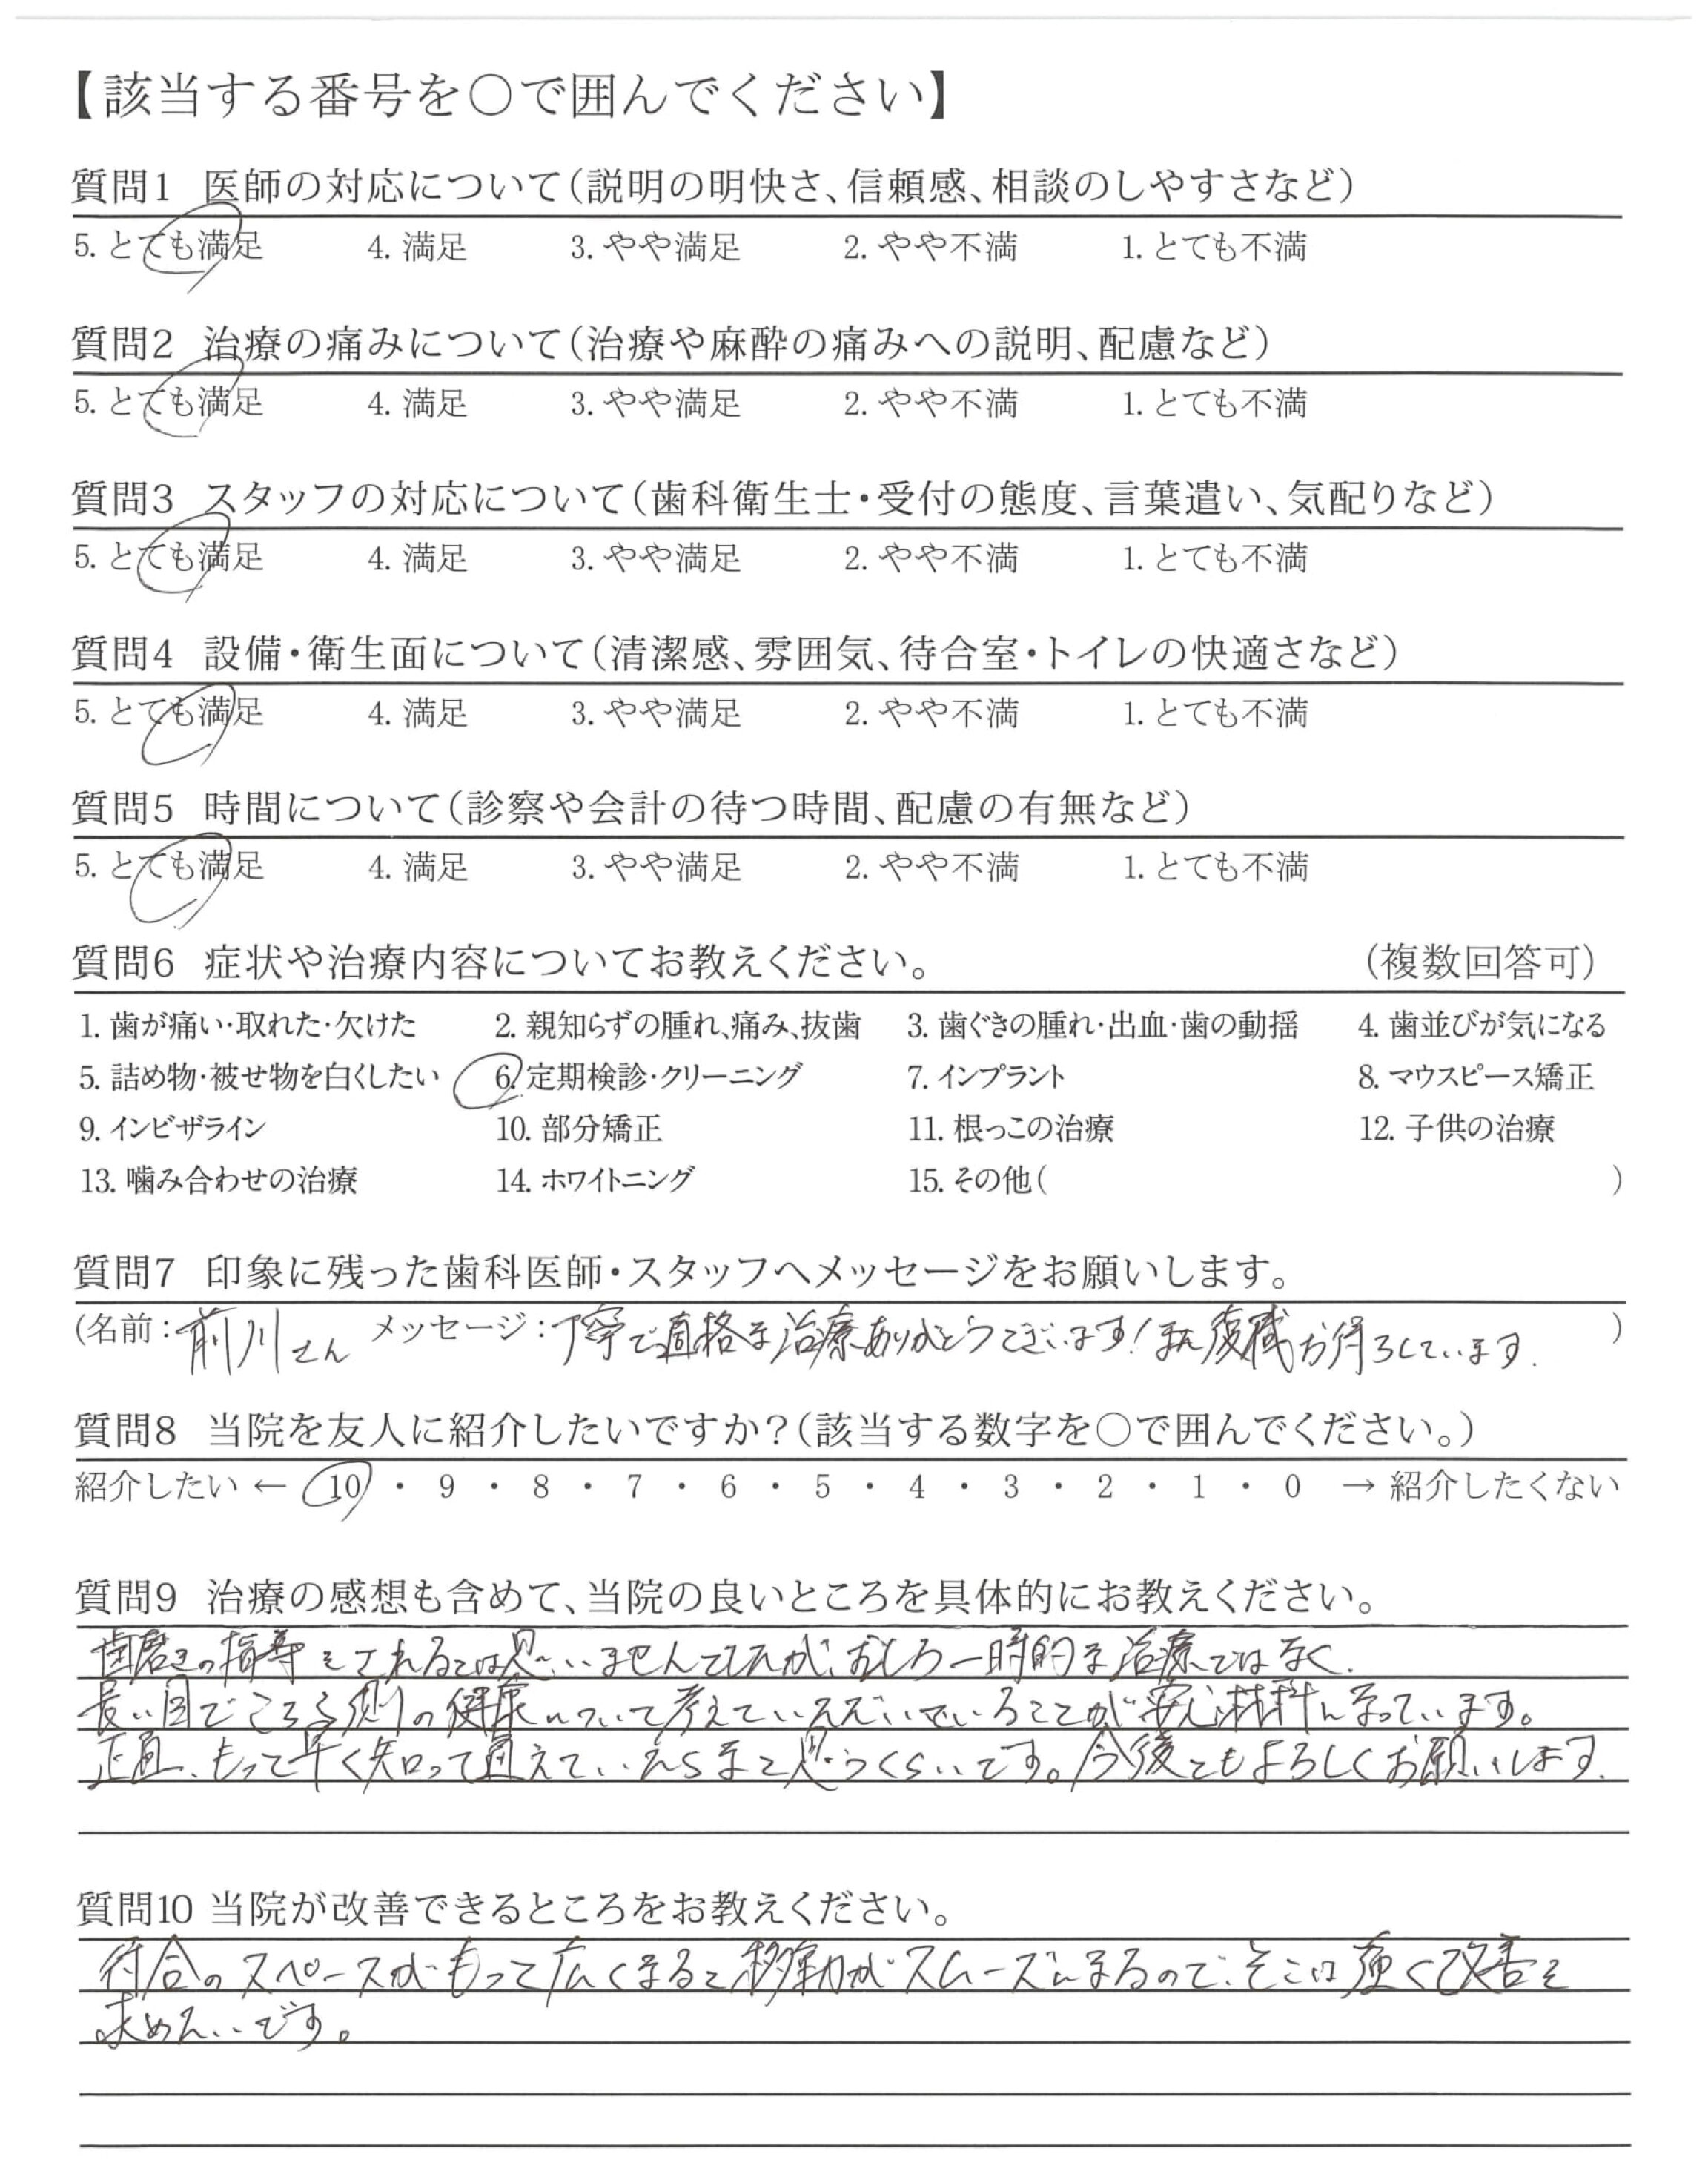 【該当する番号を○で囲んでください】
質問1 医師の対応について(説明の明快さ、信頼感、相談のしやすさなど)
5. とても満足 4. 満足 3. やや満足 2. やや不満 1. とても不満
質問2 治療の痛みについて(治療や麻酔の痛みへの説明、配慮など)
5. とても満足 4. 満足 3. やや満足 2. やや不満 1. とても不満
質問3 スタッフの対応について(歯科衛生士・受付の態度、言葉遣い、気配りなど)
5. とても満足 4. 満足 3. やや満足 2. やや不満 1. とても不満
質問4 設備・衛生面について(清潔感、雰囲気、待合室・トイレの快適さなど)
5. とても満足 4. 満足 3. やや満足 2. やや不満 1. とても不満
質問5 時間について(診察や会計の待つ時間、配慮の有無など)
5. とても満足 4. 満足 3. やや満足 2. やや不満 1. とても不満
質問6 症状や治療内容についてお教えください。 (複数回答可)
1. 歯が痛い・取れた・欠けた 2. 親知らずの腫れ、痛み、抜歯 3. 歯ぐきの腫れ・出血・歯の動揺 4. 歯並びが気になる
5. 詰め物・被せ物を白くしたい 6. 定期検診・クリーニング 7. インプラント 8. マウスピース矯正
9. インビザライン 10. 部分矯正 11. 根っこの治療 12. 子供の治療
13. 噛み合わせの治療 14. ホワイトニング 15. その他( )
質問7 印象に残った歯科医師・スタッフへメッセージをお願いします。
(名前:前川さん メッセージ:丁寧で適格な治療ありがとうございます!また復職お待ちしています. )
質問8 当院を友人に紹介したいですか?(該当する数字を○で囲んでください。)
紹介したい ← 10 ・ 9 ・ 8 ・ 7 ・ 6 ・ 5 ・ 4 ・ 3 ・ 2 ・ 1 ・ 0 → 紹介したくない
質問9 治療の感想も含めて、当院の良いところを具体的にお教えください。
歯磨きの指導をされるとは思いませんでしたが、むしろ一時的な治療ではなく、
長い目でこちら側の健康について考えていただいていることが安心材料になっています。
正直、もって早く知って通えていたらなと思うくらいです。今後ともよろしくお願いします.
質問10 当院が改善できるところをお教えください。
待合のスペースがもって広くなると移動がスムーズになるので、そこは強く改善を
求めたいです。